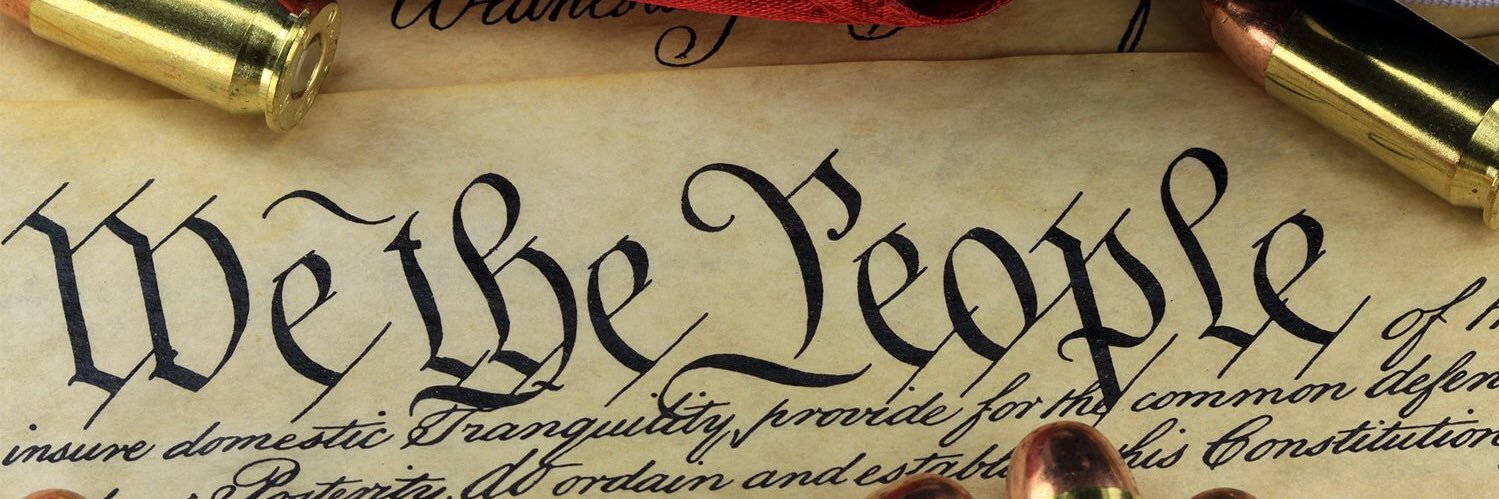 We the People of
insure domestic Tranquility, provide for the common
Posterity, do ordain and this Constitution